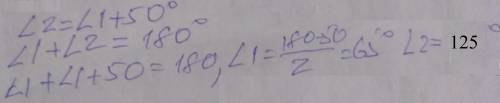 ∠2=∠1+50°
∠1+∠2=180°
∠1+∠1+50=180, ∠1=(180-50)/2=65° ∠2= 125 °